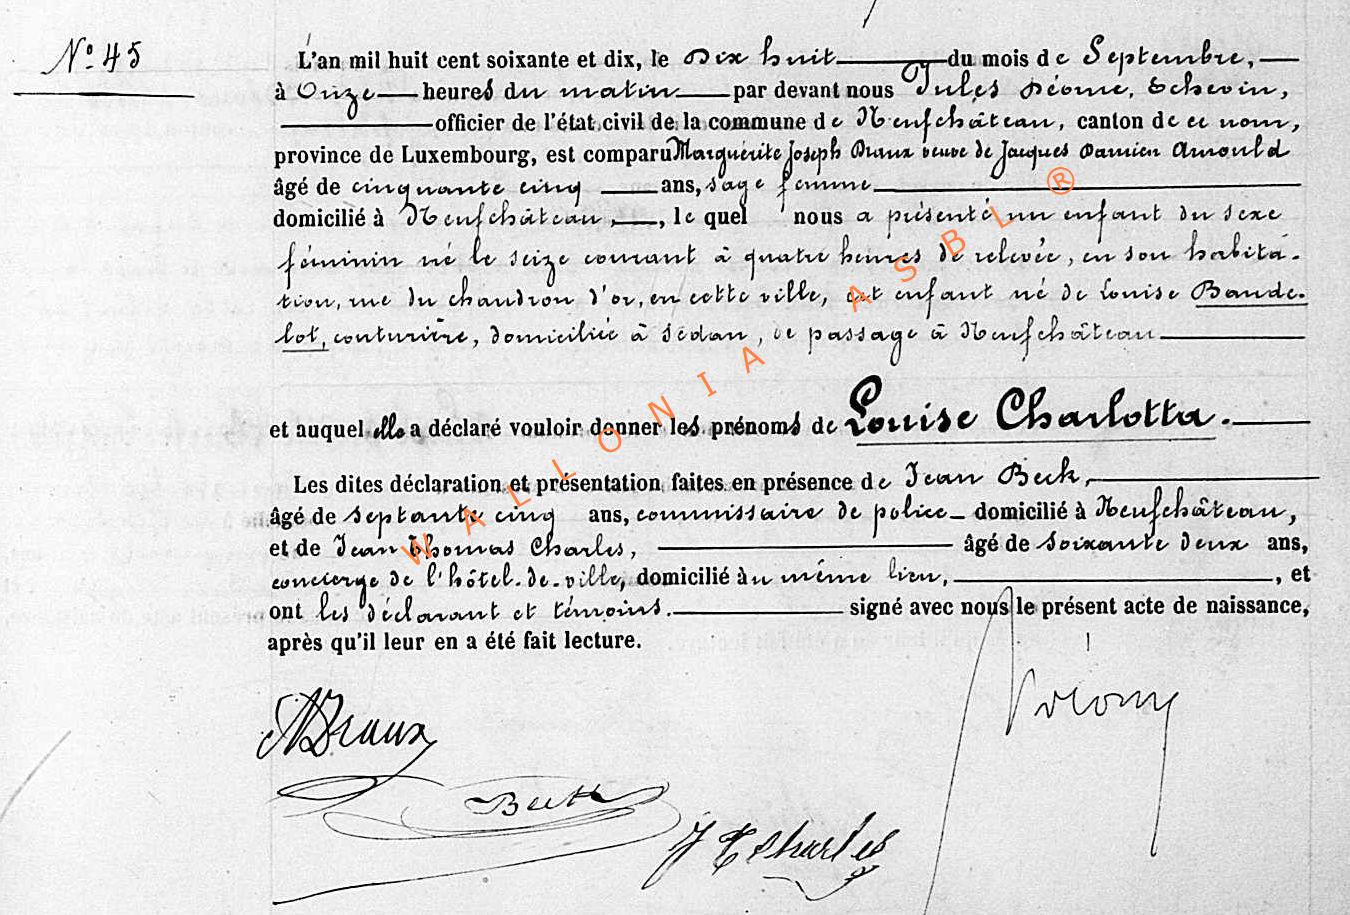 N° 45
L'an mil huit cent soixante et dix, le Dix huit du mois de Septembre,
à Onze heures du matin par devant nous Jules Déome, Echevin,
officier de l'état civil de la commune de Neufchâteau, canton de ce nom,
province de Luxembourg, est comparu Marguérite Joseph Braux veuve de Jacques Damien Arnould
âgé de cinquante cinq ans, sage femme
domicilié à Neufchâteau, le quel nous a présenté un enfant du sexe
féminin né le seize courant à quatre heures de relevée, en son habita-
tion, rue du chaudron d'or, en cette ville, cet enfant né de Louise Baude-
lot, couturière, domiciliée à Sédan, de passage à Neufchâteau
et auquel elle a déclaré vouloir donner les prénoms de Louise Charlotta.
Les dites déclaration et présentation faites en présence de Jean Beck,
âgé de septante cinq ans, commissaire de police domicilié à Neufchâteau,
et de Jean Thomas Charles, âgé de soixante deux ans,
concierge de l'hôtel-de-ville, domicilié au même lieu, et
ont les déclarant et témoins. signé avec nous le présent acte de naissance,
après qu'il leur en a été fait lecture.
Braux
Beck
J T Charles
WALLONIA ASBL ®